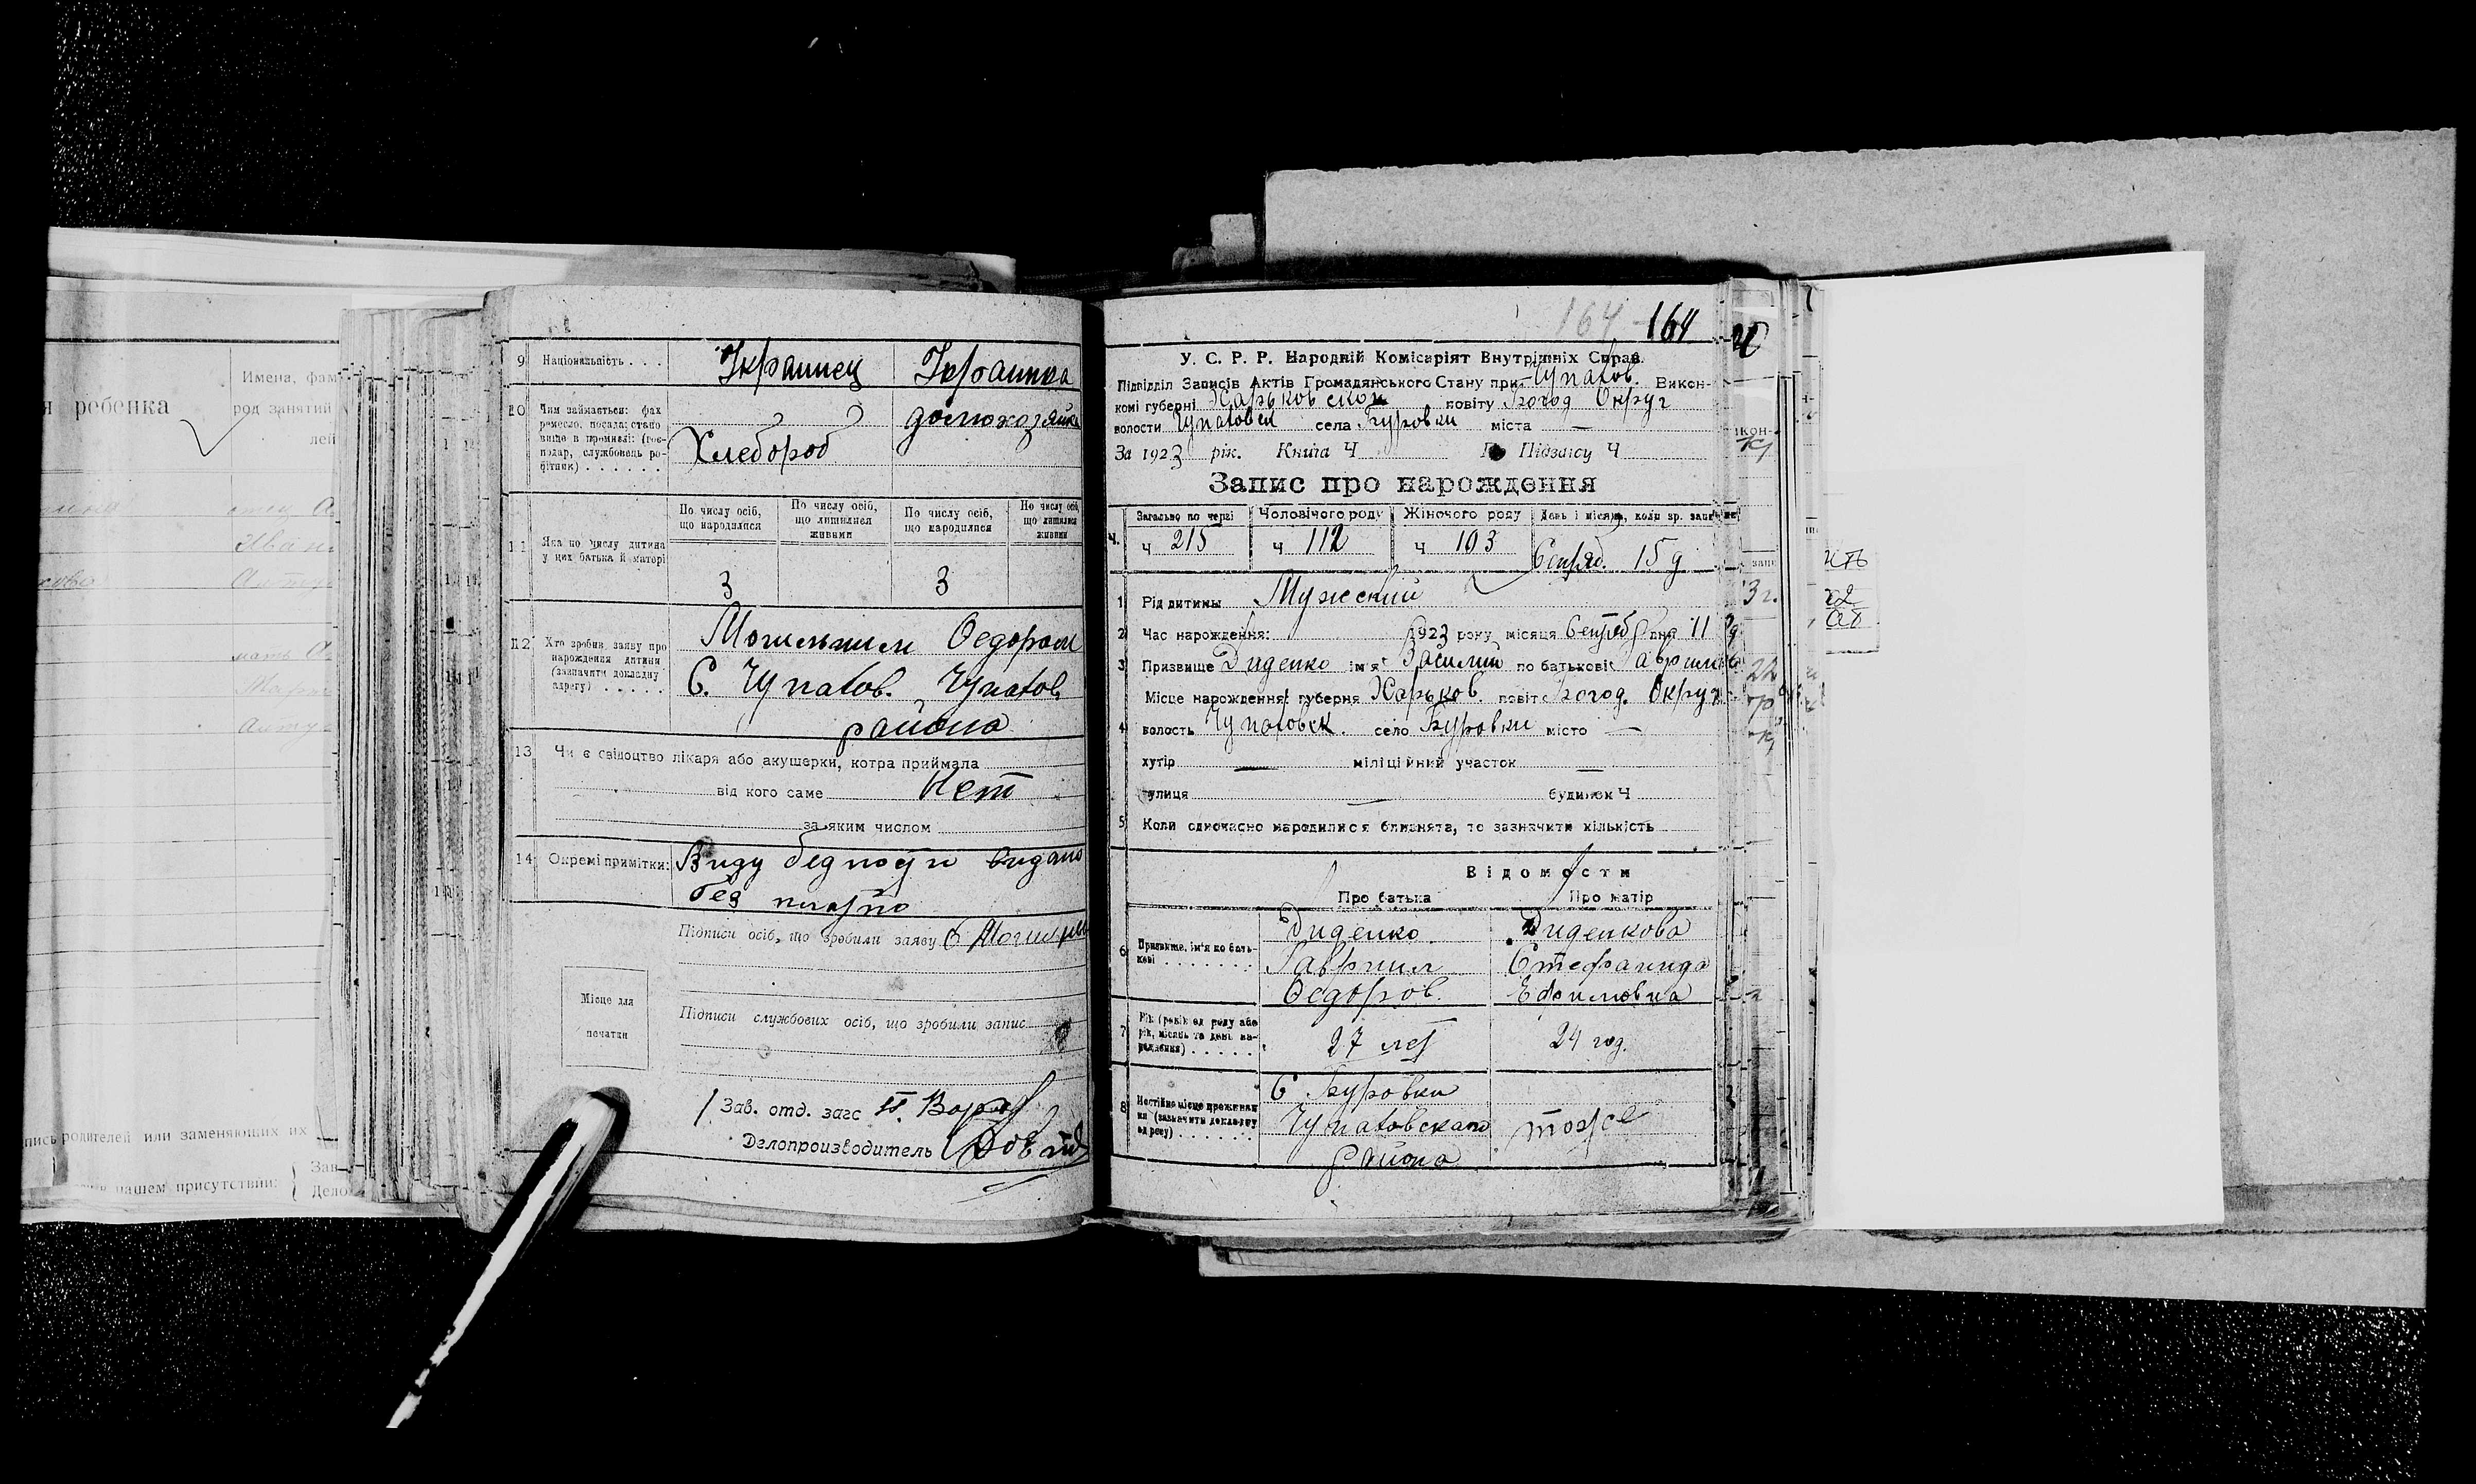 я ребенка
Имена, фам
род занятий
лей
9 Національність . . .
Украинец Украинка
10 Чим займається: фах
ремесло, посада; стано
вище в промислі: (гос-
подар, службовець ро-
бітник) . . . . . .
Хлебороб
домохозяйка
11 Яка по числу дитина
у цих батька й матері
По числу осіб,
що народилися
По числу осіб,
що лишилися
живими
По числу осіб,
що народилися
По числу осіб
що лишилися
живими
3 3
12 Хто зробив заяву про
народження дитини
(зазначити докладну
адресу) . . . . .
Могильним Федором
С. Чупахов. Чупахов
района
13 Чи є свідоцтво лікаря або акушерки, котра приймала
від кого саме Нет
за яким числом
14 Окремі примітки:
Виду бедности видано
без платно
Підписи осіб, що зробили заяву
Місце для
печатки
Підписи службових осіб, що зробили запис
Зав. отд. загс
Делопроизводитель
пись родителей или заменяющих их
нашем присутствии:
Зав
Дело
164 164
У. С. Р. Р. Народній Комісаріят Внутрішніх Справ.
Підвідділ Записів Актів Громадянського Стану при Чупахов. Викон-
комі губерні Харьковской повіту Богод Округ
волости Чупаховск села Буровки міста —
За 1923 рік. Книга Ч Підзапису Ч
Запис про народження
Загально по черзі Чоловічого роду Жіночого роду День і місяць, коли зр. запис
Ч 215 Ч 112 Ч 103 Сентяб. 15 д
1 Рід дитини Мужеский
2 Час народження: 1923 року місяця Сентяб дня 11
3 Призвище Диденко ім'я Василий по батькові Гаврилов
Місце народження: губерня Харьков. повіт Богод. Округ
4 волость Чупаховск. село Буровки місто —
хутір — міліційний участок —
улиця — будинок Ч
5 Коли одночасно народилися близнята, то зазначити кількість
Відомости
Про батька Про матір
6 Призвище, ім'я по бать-
кові . . . . . . .
Диденко Диденкова
Гавриил Стефанида
Федоров. Ефимовна
7 Вік (років од роду або
рік, місяць та день на-
родження) . . . . .
27 лет 24 год.
8 Постійне місце проживан
ня (зазначити докладну
адресу) . . . . . .
С Буровки
Чупаховскаго тоже
района